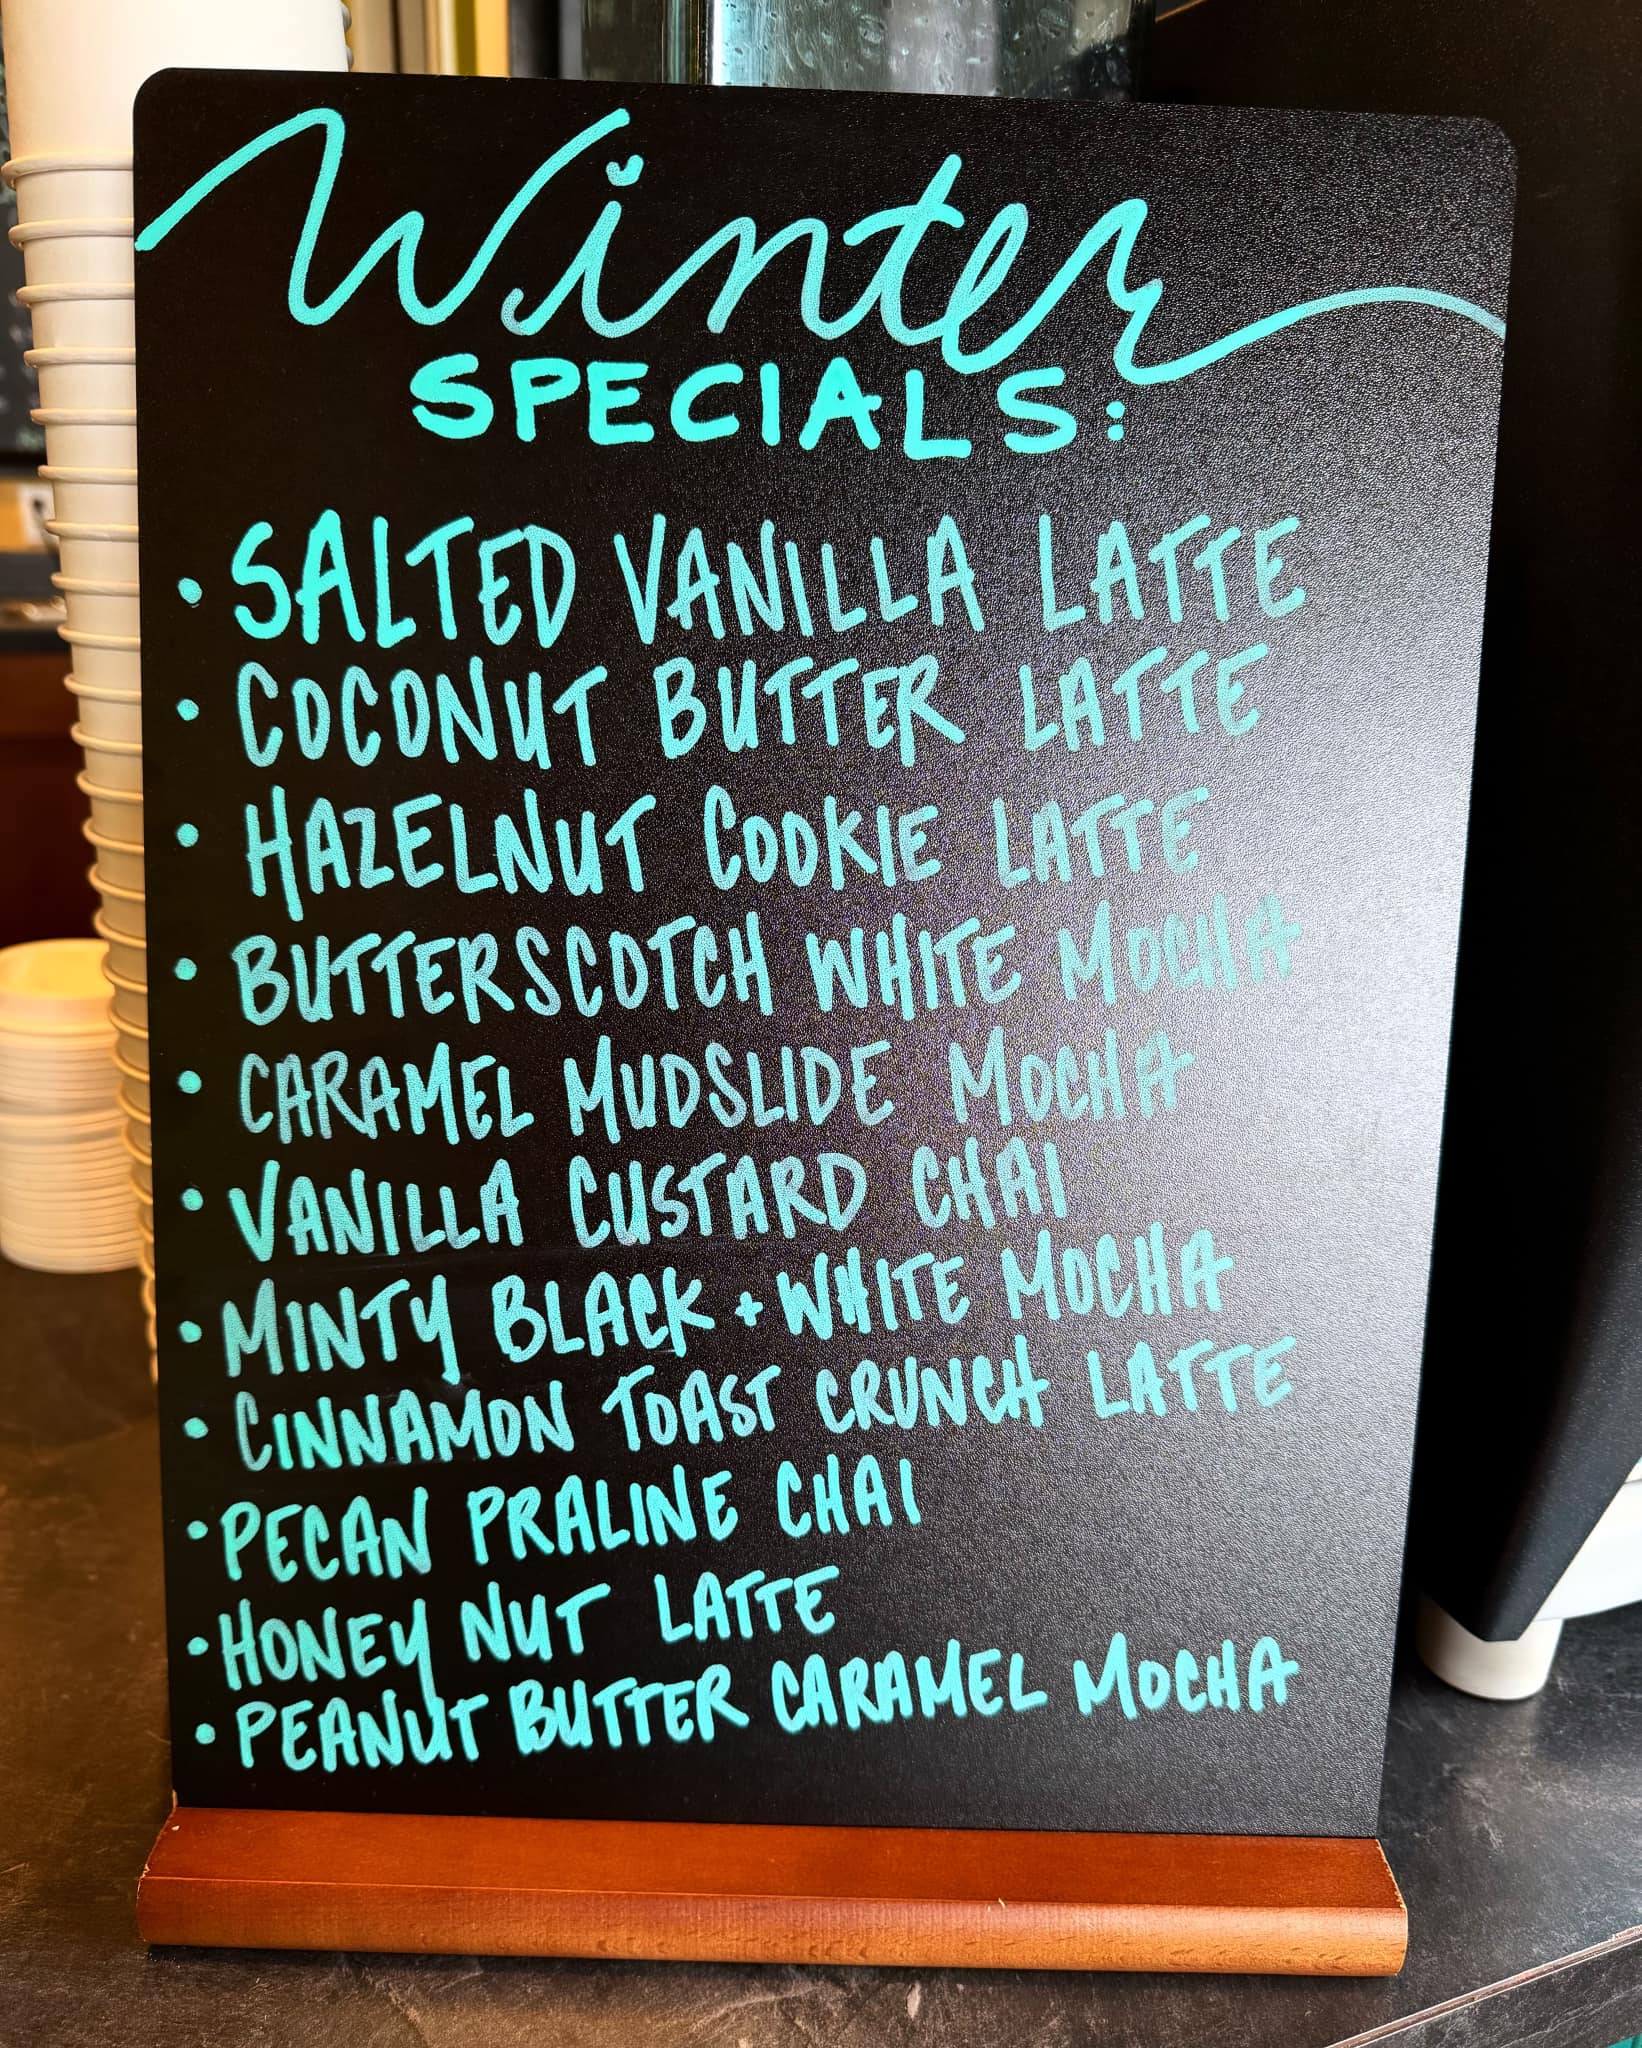 Winter
SPECIALS:
• SALTED VANILLA LATTE
• COCONUT BUTTER LATTE
• HAZELNUT COOKIE LATTE
• BUTTERSCOTCH WHITE MOCHA
• CARAMEL MUDSLIDE MOCHA
• VANILLA CUSTARD CHAI
• MINTY BLACK + WHITE MOCHA
• CINNAMON TOAST CRUNCH LATTE
• PECAN PRALINE CHAI
• HONEY NUT LATTE
• PEANUT BUTTER CARAMEL MOCHA